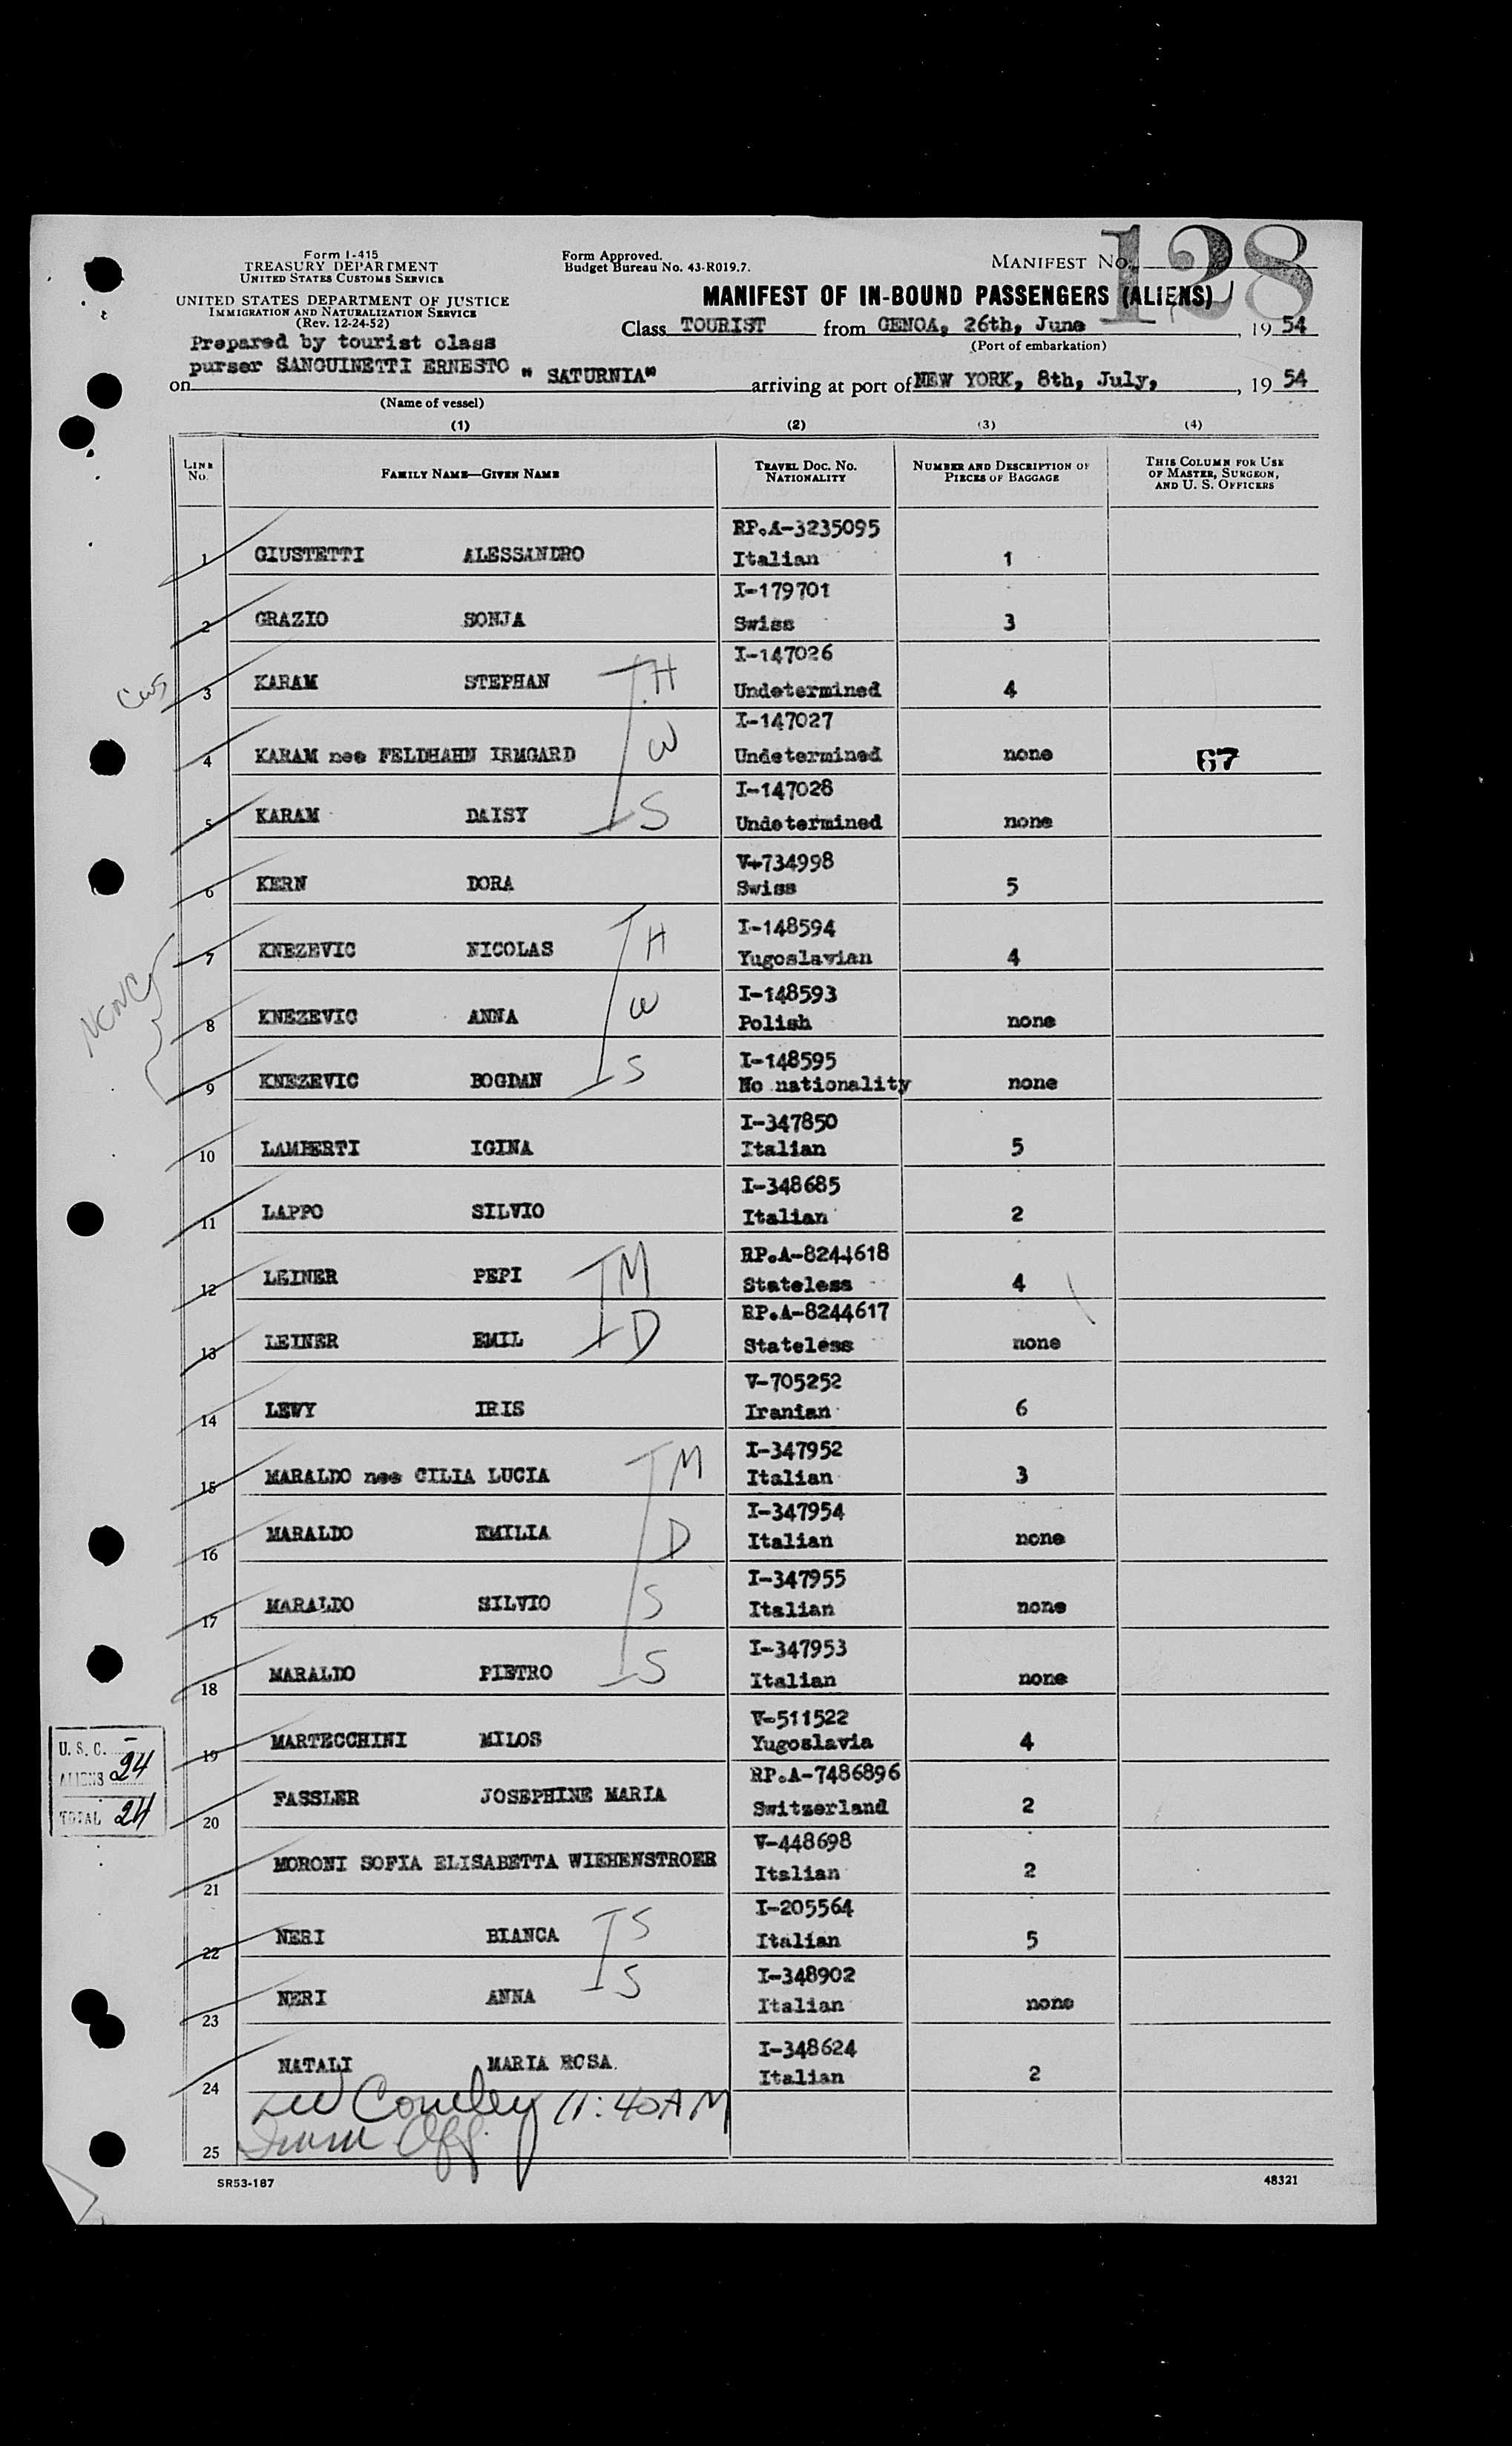 128
Form I-415
TREASURY DEPARTMENT
UNITED STATES CUSTOMS SERVICE
Form Approved.
Budget Bureau No. 43-R019.7.
MANIFEST No.
UNITED STATES DEPARTMENT OF JUSTICE
IMMIGRATION AND NATURALIZATION SERVICE
(Rev. 12-24-52)
MANIFEST OF IN-BOUND PASSENGERS (ALIENS)
Class TOURIST from GENOA, 26th, June, 19 54
(Port of embarkation)
Prepared by tourist class
purser SANGUINETTI ERNESTO
on " SATURNIA" arriving at port of NEW YORK, 8th, July, , 19 54
(Name of vessel)
(1) (2) (3) (4)
LINE No. FAMILY NAME—GIVEN NAME TRAVEL DOC. NO. NATIONALITY NUMBER AND DESCRIPTION OF PIECES OF BAGGAGE THIS COLUMN FOR USE OF MASTER, SURGEON, AND U. S. OFFICERS
RP.A-3235095
1 GIUSTETTI ALESSANDRO Italian 1
I-179701
2 GRAZIO SONJA Swiss 3
I-147026
3 KARAM STEPHAN H Undetermined 4
I-147027
4 KARAM nee FELDHAHN IRMGARD W Undetermined none 67
I-147028
5 KARAM DAISY S Undetermined none
V-734998
6 KERN DORA Swiss 5
I-148594
7 KNEZEVIC NICOLAS H Yugoslavian 4
I-148593
8 KNEZEVIC ANNA W Polish none
I-148595
9 KNEZEVIC BOGDAN S No nationality none
I-347850
10 LAMBERTI IGINA Italian 5
I-348685
11 LAPPO SILVIO Italian 2
RP.A-8244618
12 LEINER PEPI M Stateless 4
RP.A-8244617
13 LEINER EMIL D Stateless none
V-705252
14 LEWY IRIS Iranian 6
I-347952
15 MARALDO nee CILIA LUCIA M Italian 3
I-347954
16 MARALDO EMILIA D Italian none
I-347955
17 MARALDO SILVIO S Italian none
I-347953
18 MARALDO PIETRO S Italian none
V-511522
19 MARTECCHINI MILOS Yugoslavia 4
RP.A-7486896
20 FASSLER JOSEPHINE MARIA Switzerland 2
V-448698
21 MORONI SOFIA ELISABETTA WIEHENSTROER Italian 2
I-205564
22 NERI BIANCA S Italian 5
I-348902
23 NERI ANNA S Italian none
I-348624
24 NATALI MARIA ROSA. Italian 2
11:40AM
25
U. S. C. –
ALIENS 24
TOTAL 24
SR53-187
48321